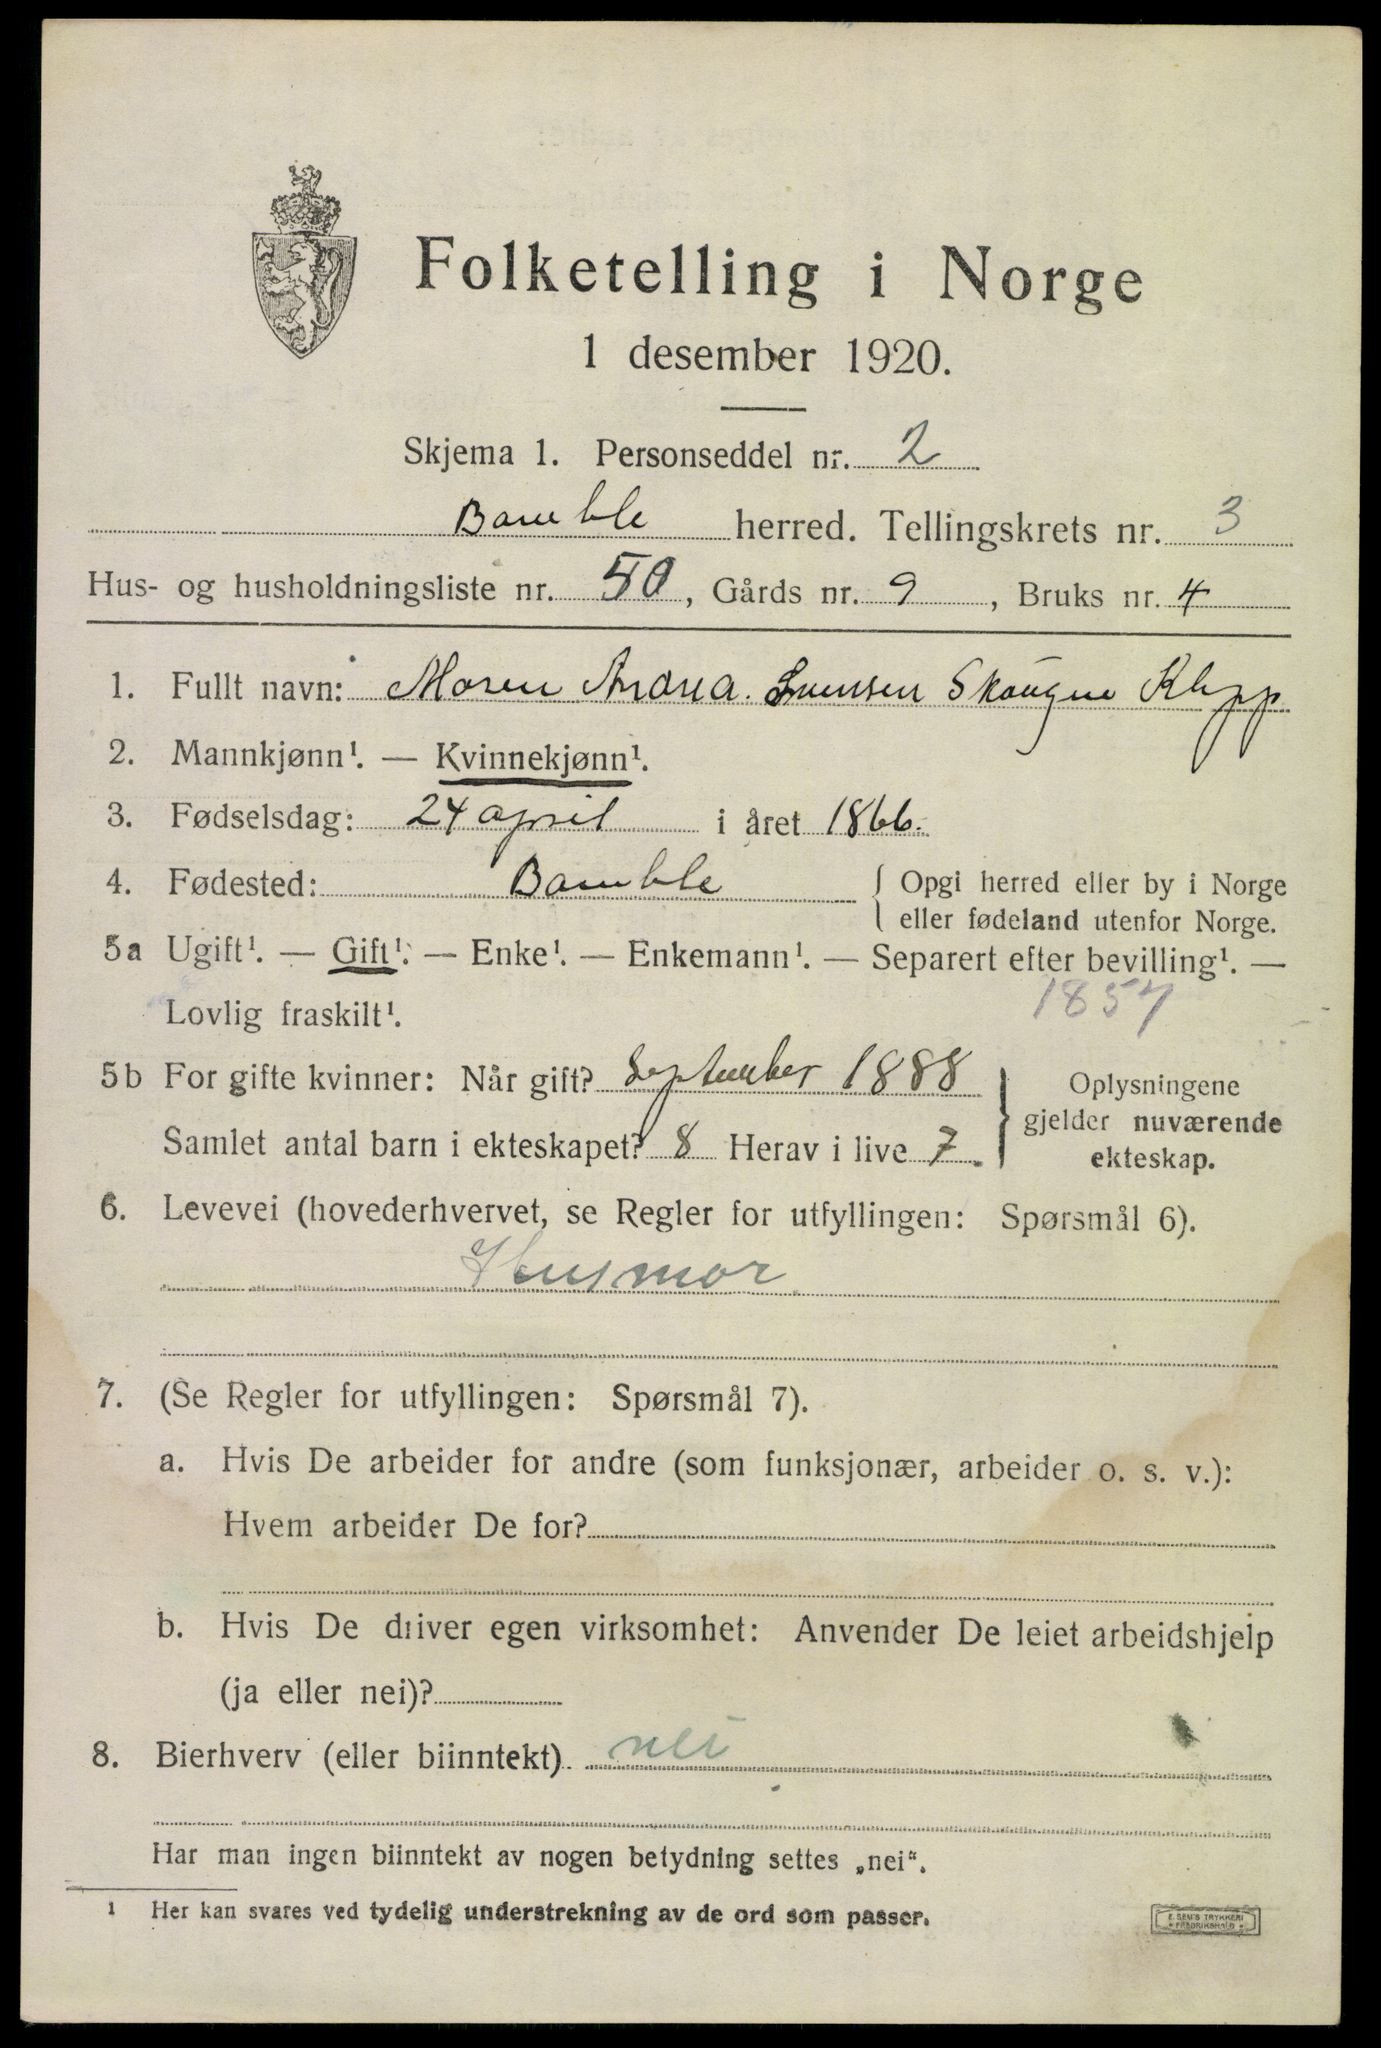 Folketelling i Norge
1 desember 1920.
Skjema 1. Personseddel nr. 2
Bamble herred. Tellingskrets nr. 3
Hus- og husholdningsliste nr. 50, Gårds nr. 9, Bruks nr. 4
1. Fullt navn: Maren Andrea. Svensen Skaugen Klepp
2. Mannkjønn¹. — Kvinnekjønn¹.
3. Fødselsdag: 24 april i året 1866.
4. Fødested: Bamble { Opgi herred eller by i Norge
eller fødeland utenfor Norge.
5a Ugift¹. — Gift¹. — Enke¹. — Enkemann¹. — Separert efter bevilling¹. —
Lovlig fraskilt¹. 1857
5b For gifte kvinner: Når gift? September 1888 } Oplysningene
gjelder nuværende
Samlet antal barn i ekteskapet? 8 Herav i live 7.
ekteskap.
6. Levevei (hovederhvervet, se Regler for utfyllingen: Spørsmål 6).
Husmor
7. (Se Regler for utfyllingen: Spørsmål 7).
a. Hvis De arbeider for andre (som funksjonær, arbeider o. s. v.):
Hvem arbeider De for?
b. Hvis De driver egen virksomhet: Anvender De leiet arbeidshjelp
(ja eller nei)?
8. Bierhverv (eller biinntekt) nei
Har man ingen biinntekt av nogen betydning settes „nei“.
¹ Her kan svares ved tydelig understrekning av de ord som passer.
E. SEM'S TRYKKERI
FREDRIKSHALD